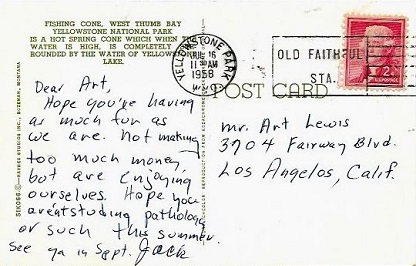 FISHING CONE, WEST THUMB BAY
YELLOWSTONE NATIONAL PARK
IS A HOT SPRING CONE WHICH WHEN THE
WATER IS HIGH, IS COMPLETELY
ROUNDED BY THE WATER OF YELLOWSTONE
LAKE.
Dear Art,
Hope you're having
as much fun as
we are. Not making
too much money
but are enjoying
ourselves. Hope you
arentstuding pathology
or such this summer.
See ya in Sept. Jack
YELLOWSTONE PARK
AUG 16
AM
1958
WYO.
OLD FAITHFUL
STA.
2¢
POST CARD
Mr. Art Lewis
3704 Fairway Blvd.
Los Angelos, Calif.
STUDIOS INC., BOZEMAN, MONTANA